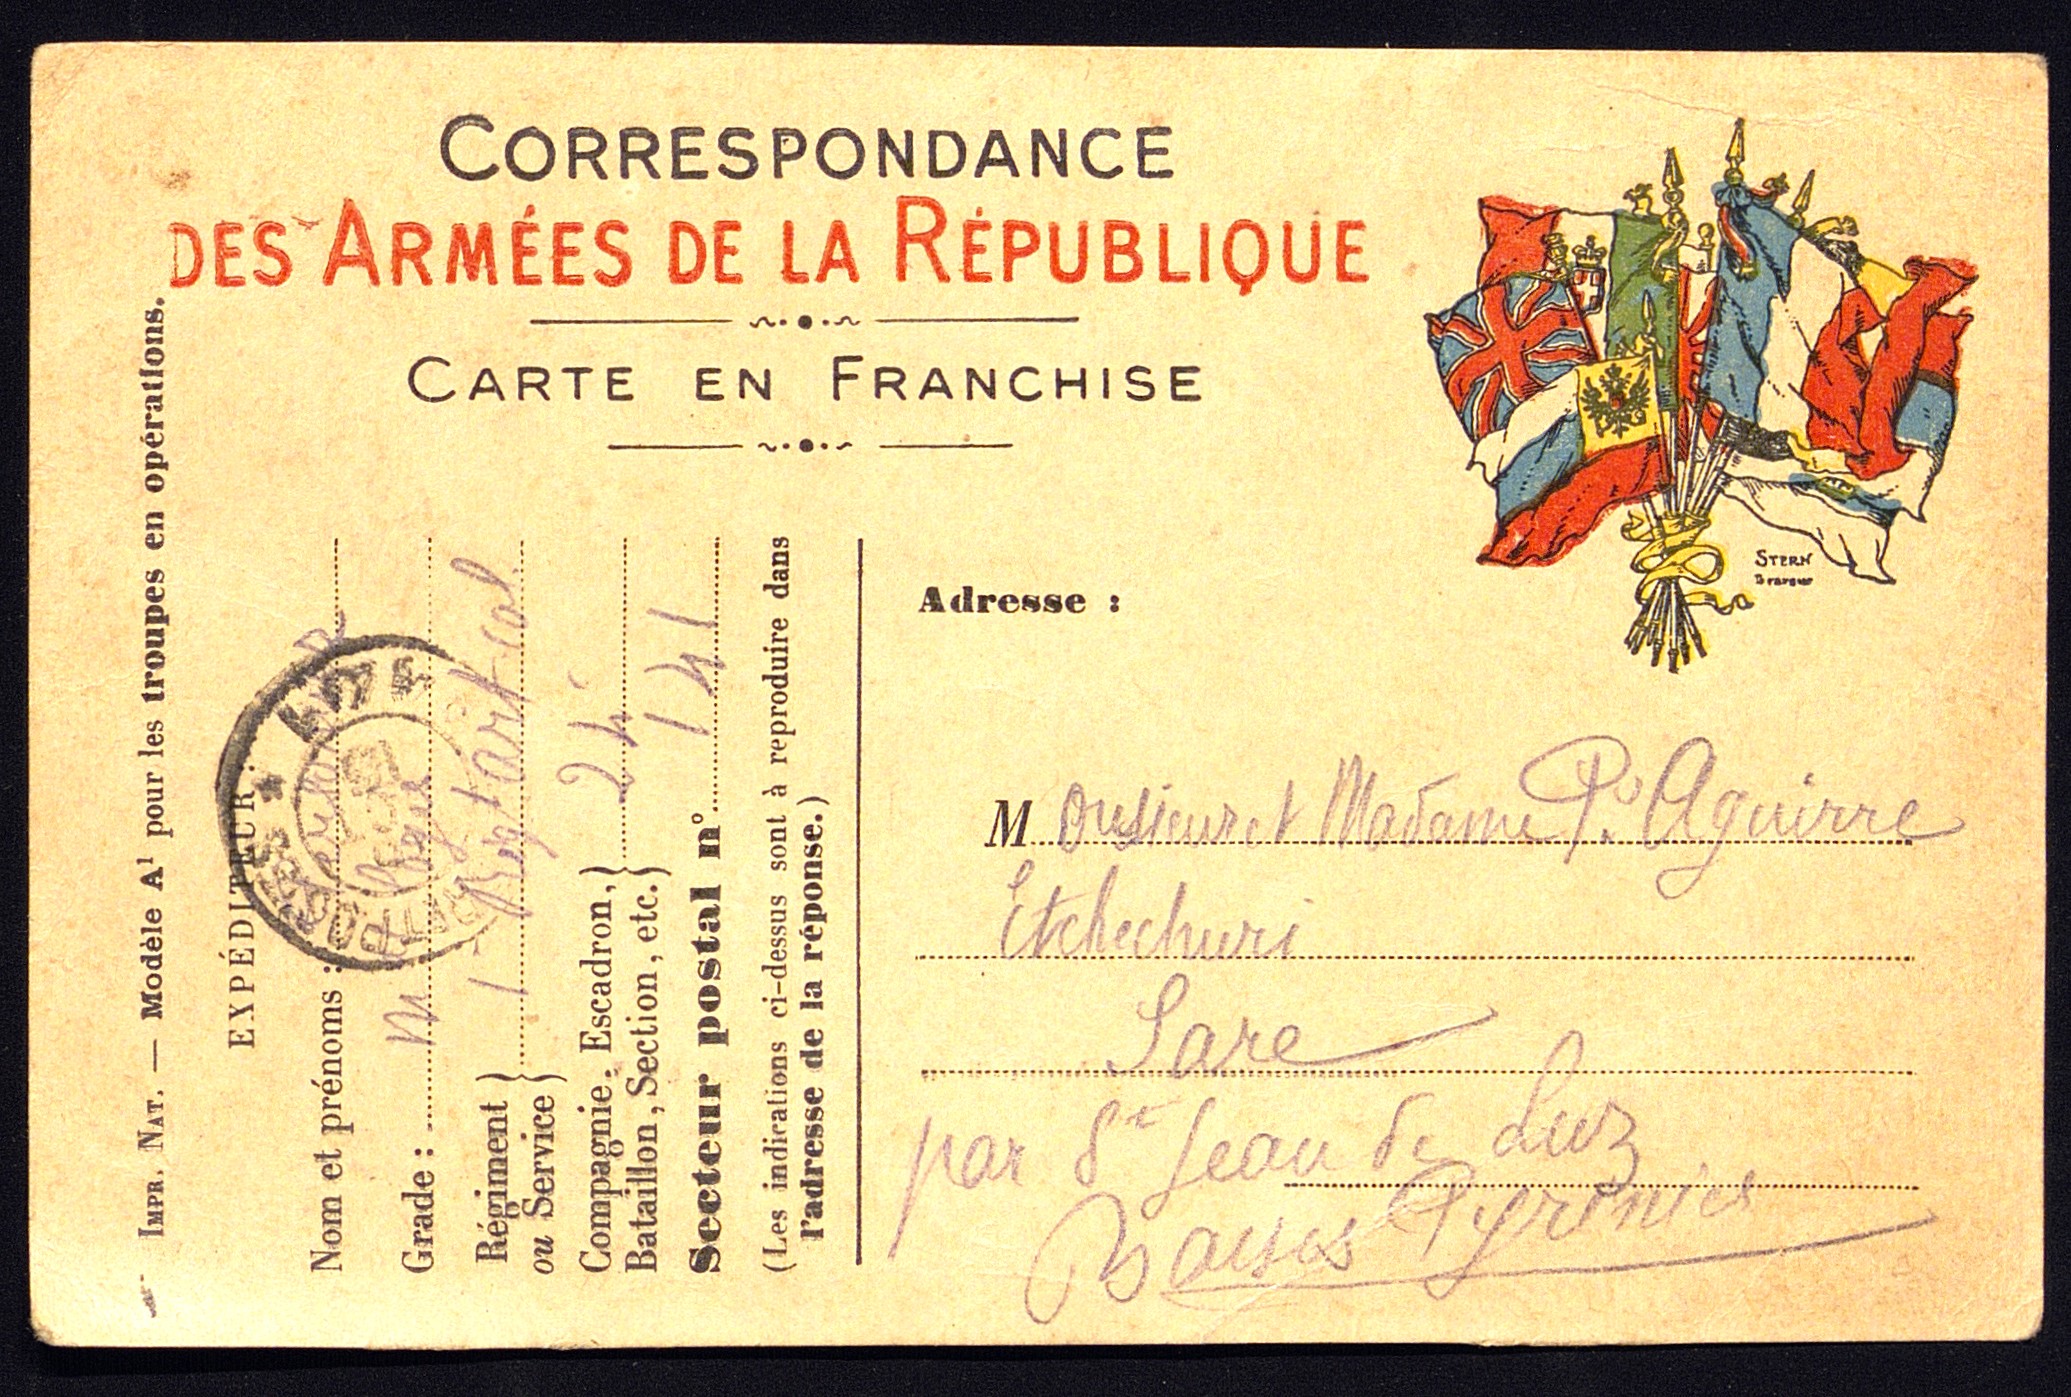 CORRESPONDANCE
DES ARMÉES DE LA RÉPUBLIQUE
CARTE EN FRANCHISE
STERN
Graveur
IMPR. NAT. — Modèle A¹ pour les troupes en opérations.
EXPÉDITEUR :
Nom et prénoms :
Grade : M
Régiment
ou Service } 1 Regt art col.
Compagnie, Escadron, }
Bataillon, Section, etc. } 24
Secteur postal n° 141
(Les indications ci-dessus sont à reproduire dans
l'adresse de la réponse.)
Adresse :
Monsieur et Madame P. Aguirre
Etchechuri
Sare
par St Jean de Luz
Basses Pyrénées